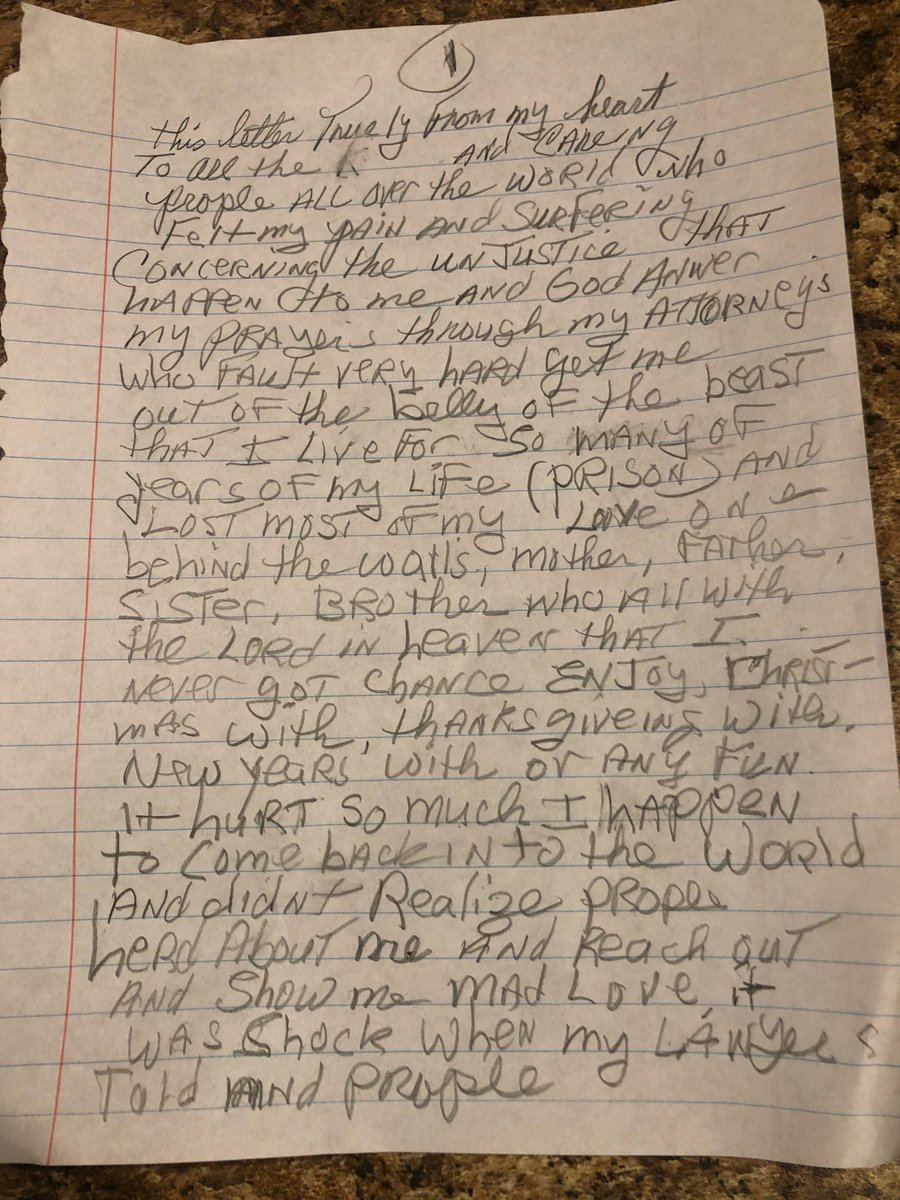 1
this letter Truely From my heart
To all the K AND CAREING
people ALL over the WORLD who
Felt my PAIN AND SURFERING
CONCERNING the UNJUSTICE THAT
HAPPEN to me AND God ANWER
my PRAYers through my ATTORNeys
who FAULT very HARD get me
OUT OF the Belly OF the beast
thAT I LIVE FOR SO MANY OF
years OF my LIFE (PRISON) AND
LOST MOST OF my LOVE ONe
behind the walls, mother, FATher,
SISTER, BROther who All with
the LORD IN heaven thAT I
NEVER GOT ChANCE ENJOY, ChRIST-
MAS with, thANKSgiveing with,
New years with or ANy FUN.
It huRT So much I hAPPEN
to Come bACK INTO the World
ANd didnt Realize PROPLE
heRd AbOUT me AND Reach out
AND Show me MAD LOVE, it
WAS Shock when my LAWYeRS
Told ANd PROPLE